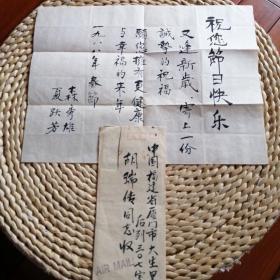 祝您節日快乐
又逢新歲，寄上一份
誠摯的祝福
願您擁有更健康
与幸福的来年
一九八八年春節
森秀雄
夏跃芳
中国福建省厦门市大生里
后到三〇七室
胡瑞传同志收
AIR MAIL